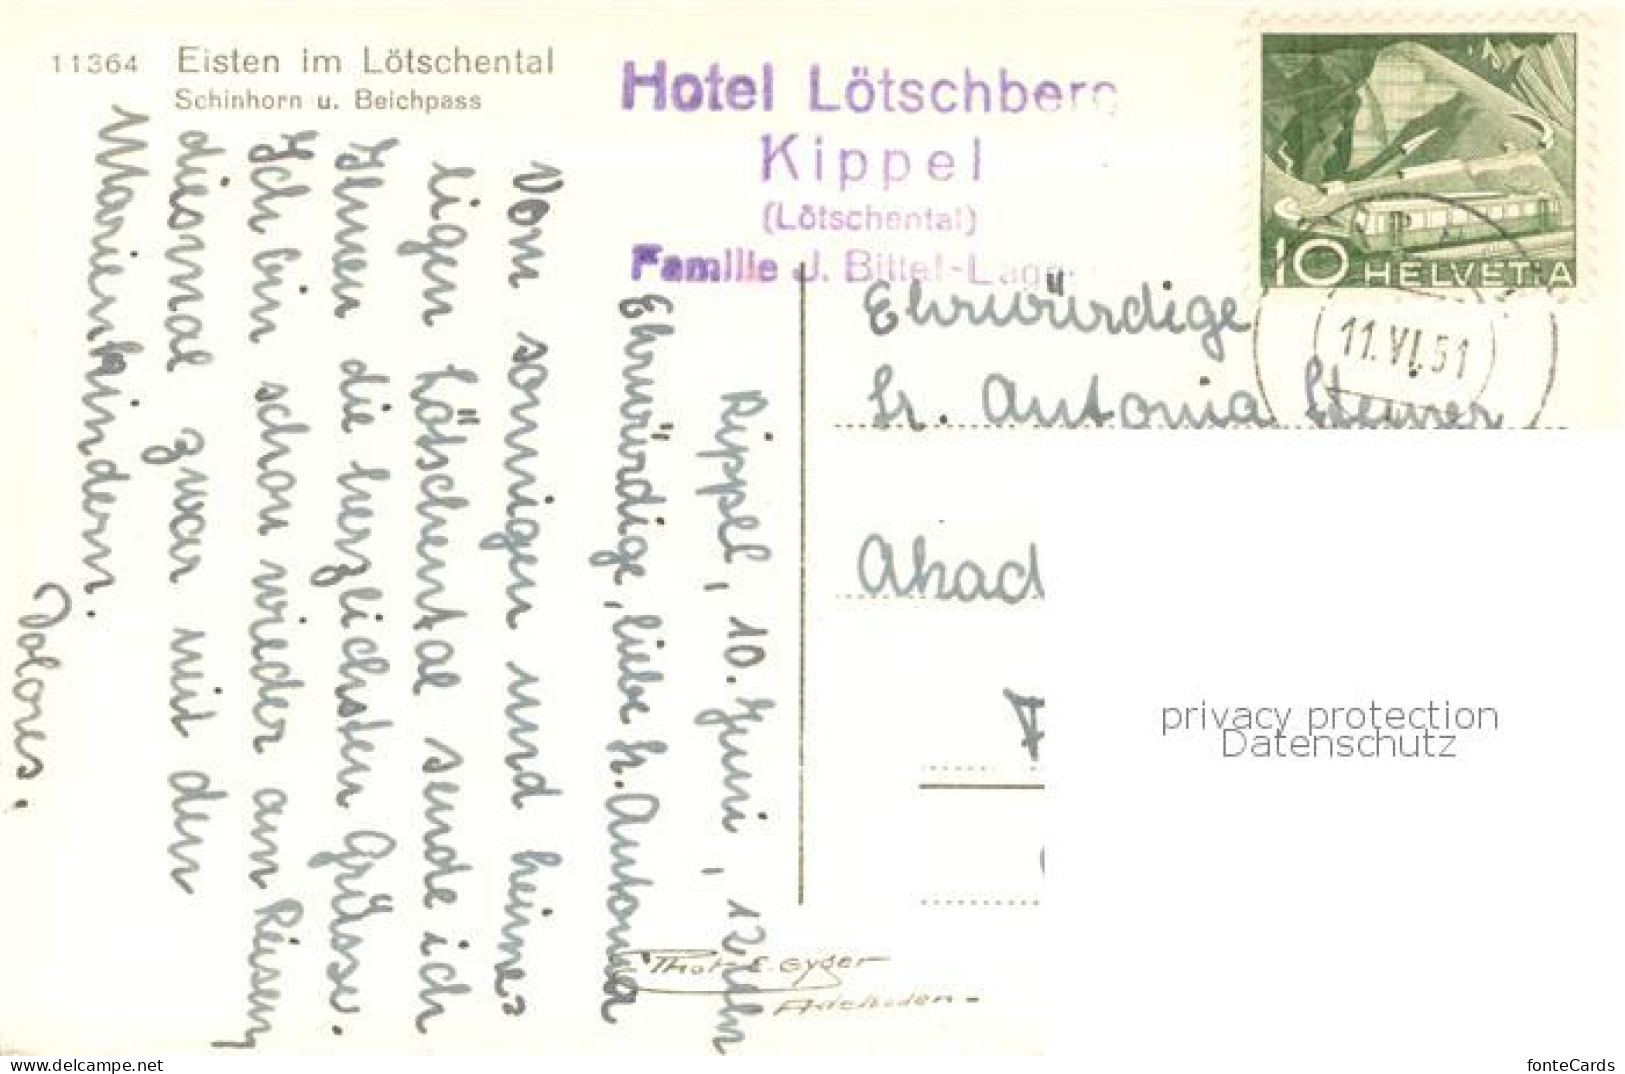 11364 Eisten im Lötschental
Schinhorn u. Beichpass
Hotel Lötschberg
Kippel
(Lötschental)
Familie J. Bittel-
10 HELVETIA
11.VI.51
Kippel, 10. Juni, 12 Uhr
Ehrwürdige, liebe Sr. Antonia
Vom sonnigen und heime=
ligen Lötschental sende ich
Ihnen die herzlichsten Grüsse.
Ich bin schon wieder am Reisen,
diesmal zwar mit den
Marienkindern.
Dolores.
Ehrwürdige
Sr. Antonia Steiner
Akad
Phot. E. Gyger
Adelboden-
privacy protection
Datenschutz
https://www.ansichtskarten-center.de/
fonteCards